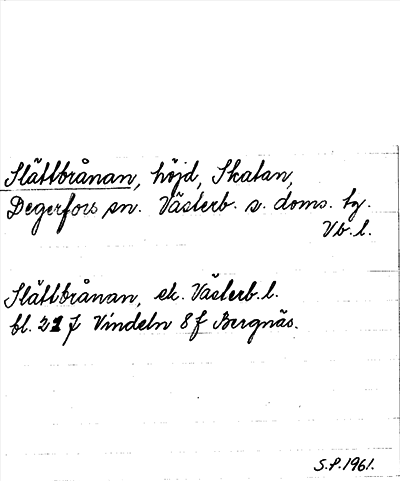 Slättbrånan, höjd, Skatan,
Degerfors sn. Västerb. s. doms. tg.
Vb. l.
Slättbrånan, ek. Västerb. l.
bl. 21 J Vindeln 8 f Bergnäs.
S.P. 1961.